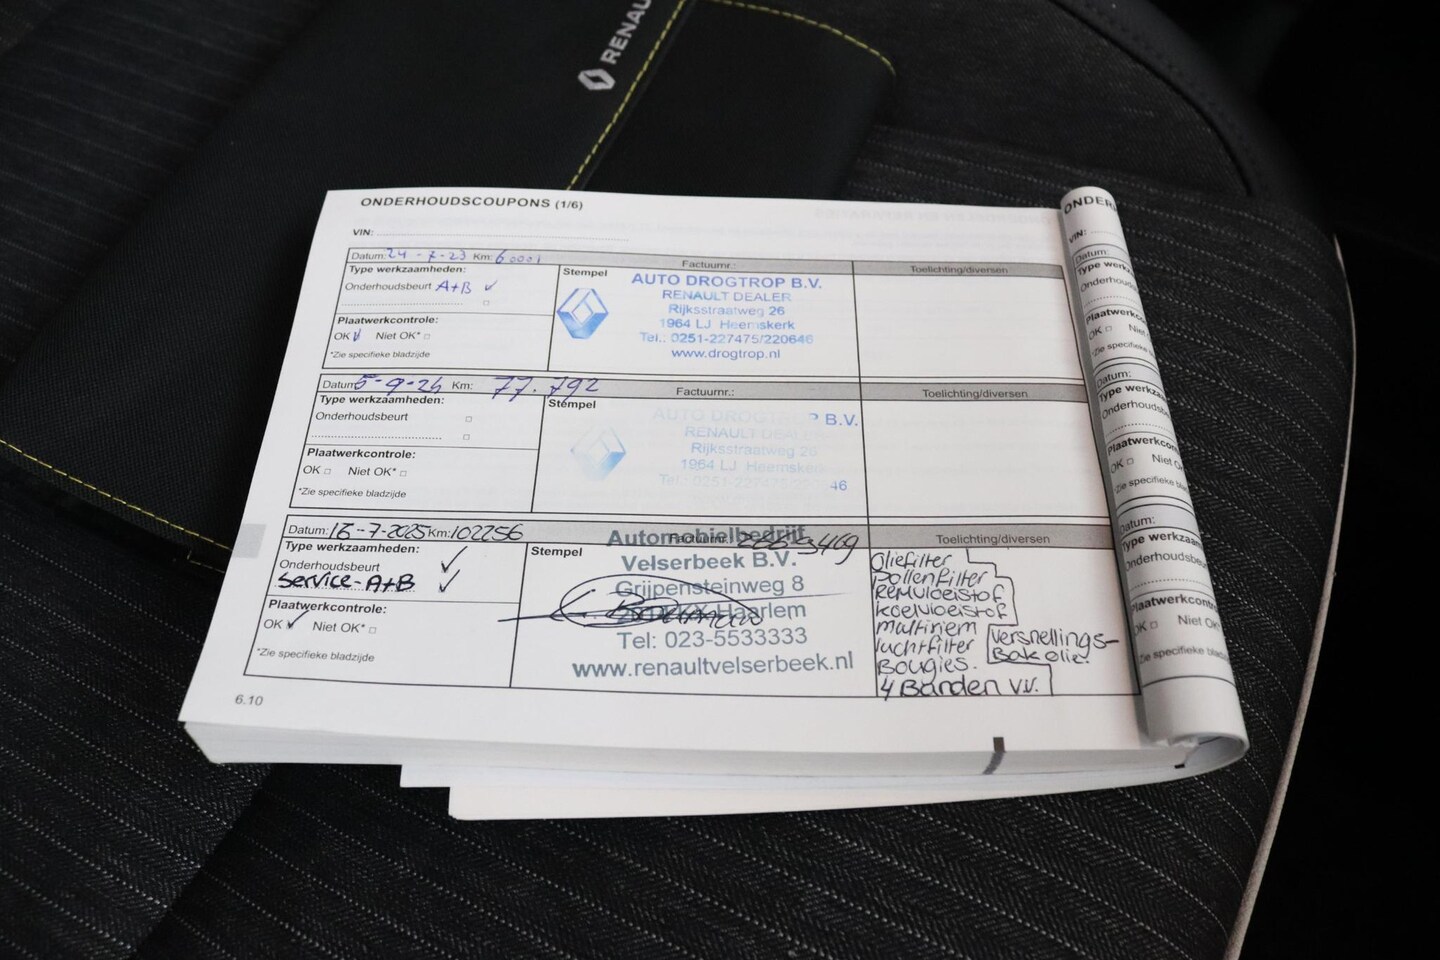 RENAU
ONDERHOUDSCOUPONS (1/6)
VIN:
Datum: 24-7-23 Km: 60001 Factuurnr.: Toelichting/diversen
Type werkzaamheden:
Onderhoudsbeurt A+B ✓
Plaatwerkcontrole:
OK ✓ Niet OK* □
*Zie specifieke bladzijde
Stempel
AUTO DROGTROP B.V.
RENAULT DEALER
Rijksstraatweg 26
1964 LJ Heemskerk
Tel.: 0251-227475/220646
www.drogtrop.nl
Datum 5-9-24 Km: 77.792 Factuurnr.: Toelichting/diversen
Type werkzaamheden:
Onderhoudsbeurt □
Plaatwerkcontrole:
OK □ Niet OK* □
*Zie specifieke bladzijde
Stempel
AUTO DROGTROP B.V.
RENAULT DEALE
Rijksstraatweg 26
1964 LJ Heemskerk
Tel.: 0251-227475/220646
Datum: 16-7-2025 Km: 102256 Factuurnr.: Toelichting/diversen
Type werkzaamheden:
Onderhoudsbeurt ✓
Service-A+B ✓
Plaatwerkcontrole:
OK ✓ Niet OK* □
*Zie specifieke bladzijde
Stempel
Automobielbedrijf
Velserbeek B.V.
Grijpensteinweg 8
Haarlem
Tel: 023-5533333
www.renaultvelserbeek.nl
Oliefilter
Pollenfilter
Remvloeistof
Koelvloeistof
Multiriem
Luchtfilter
Bougies.
4 Banden v.v.
Versnellings-
Bak olie.
6.10
ONDER
VIN:
Datum:
Type werk
Onderhoudsb
Plaatwerkco
OK □ Niet
*Zie specifieke
Datum:
Type werkz
Onderhoudsb
Plaatwerkcon
OK □ Niet O
*Zie specifieke b
Datum:
Type werkza
Onderhoudsbe
Plaatwerkcontro
OK □ Niet O
*Zie specifieke bla